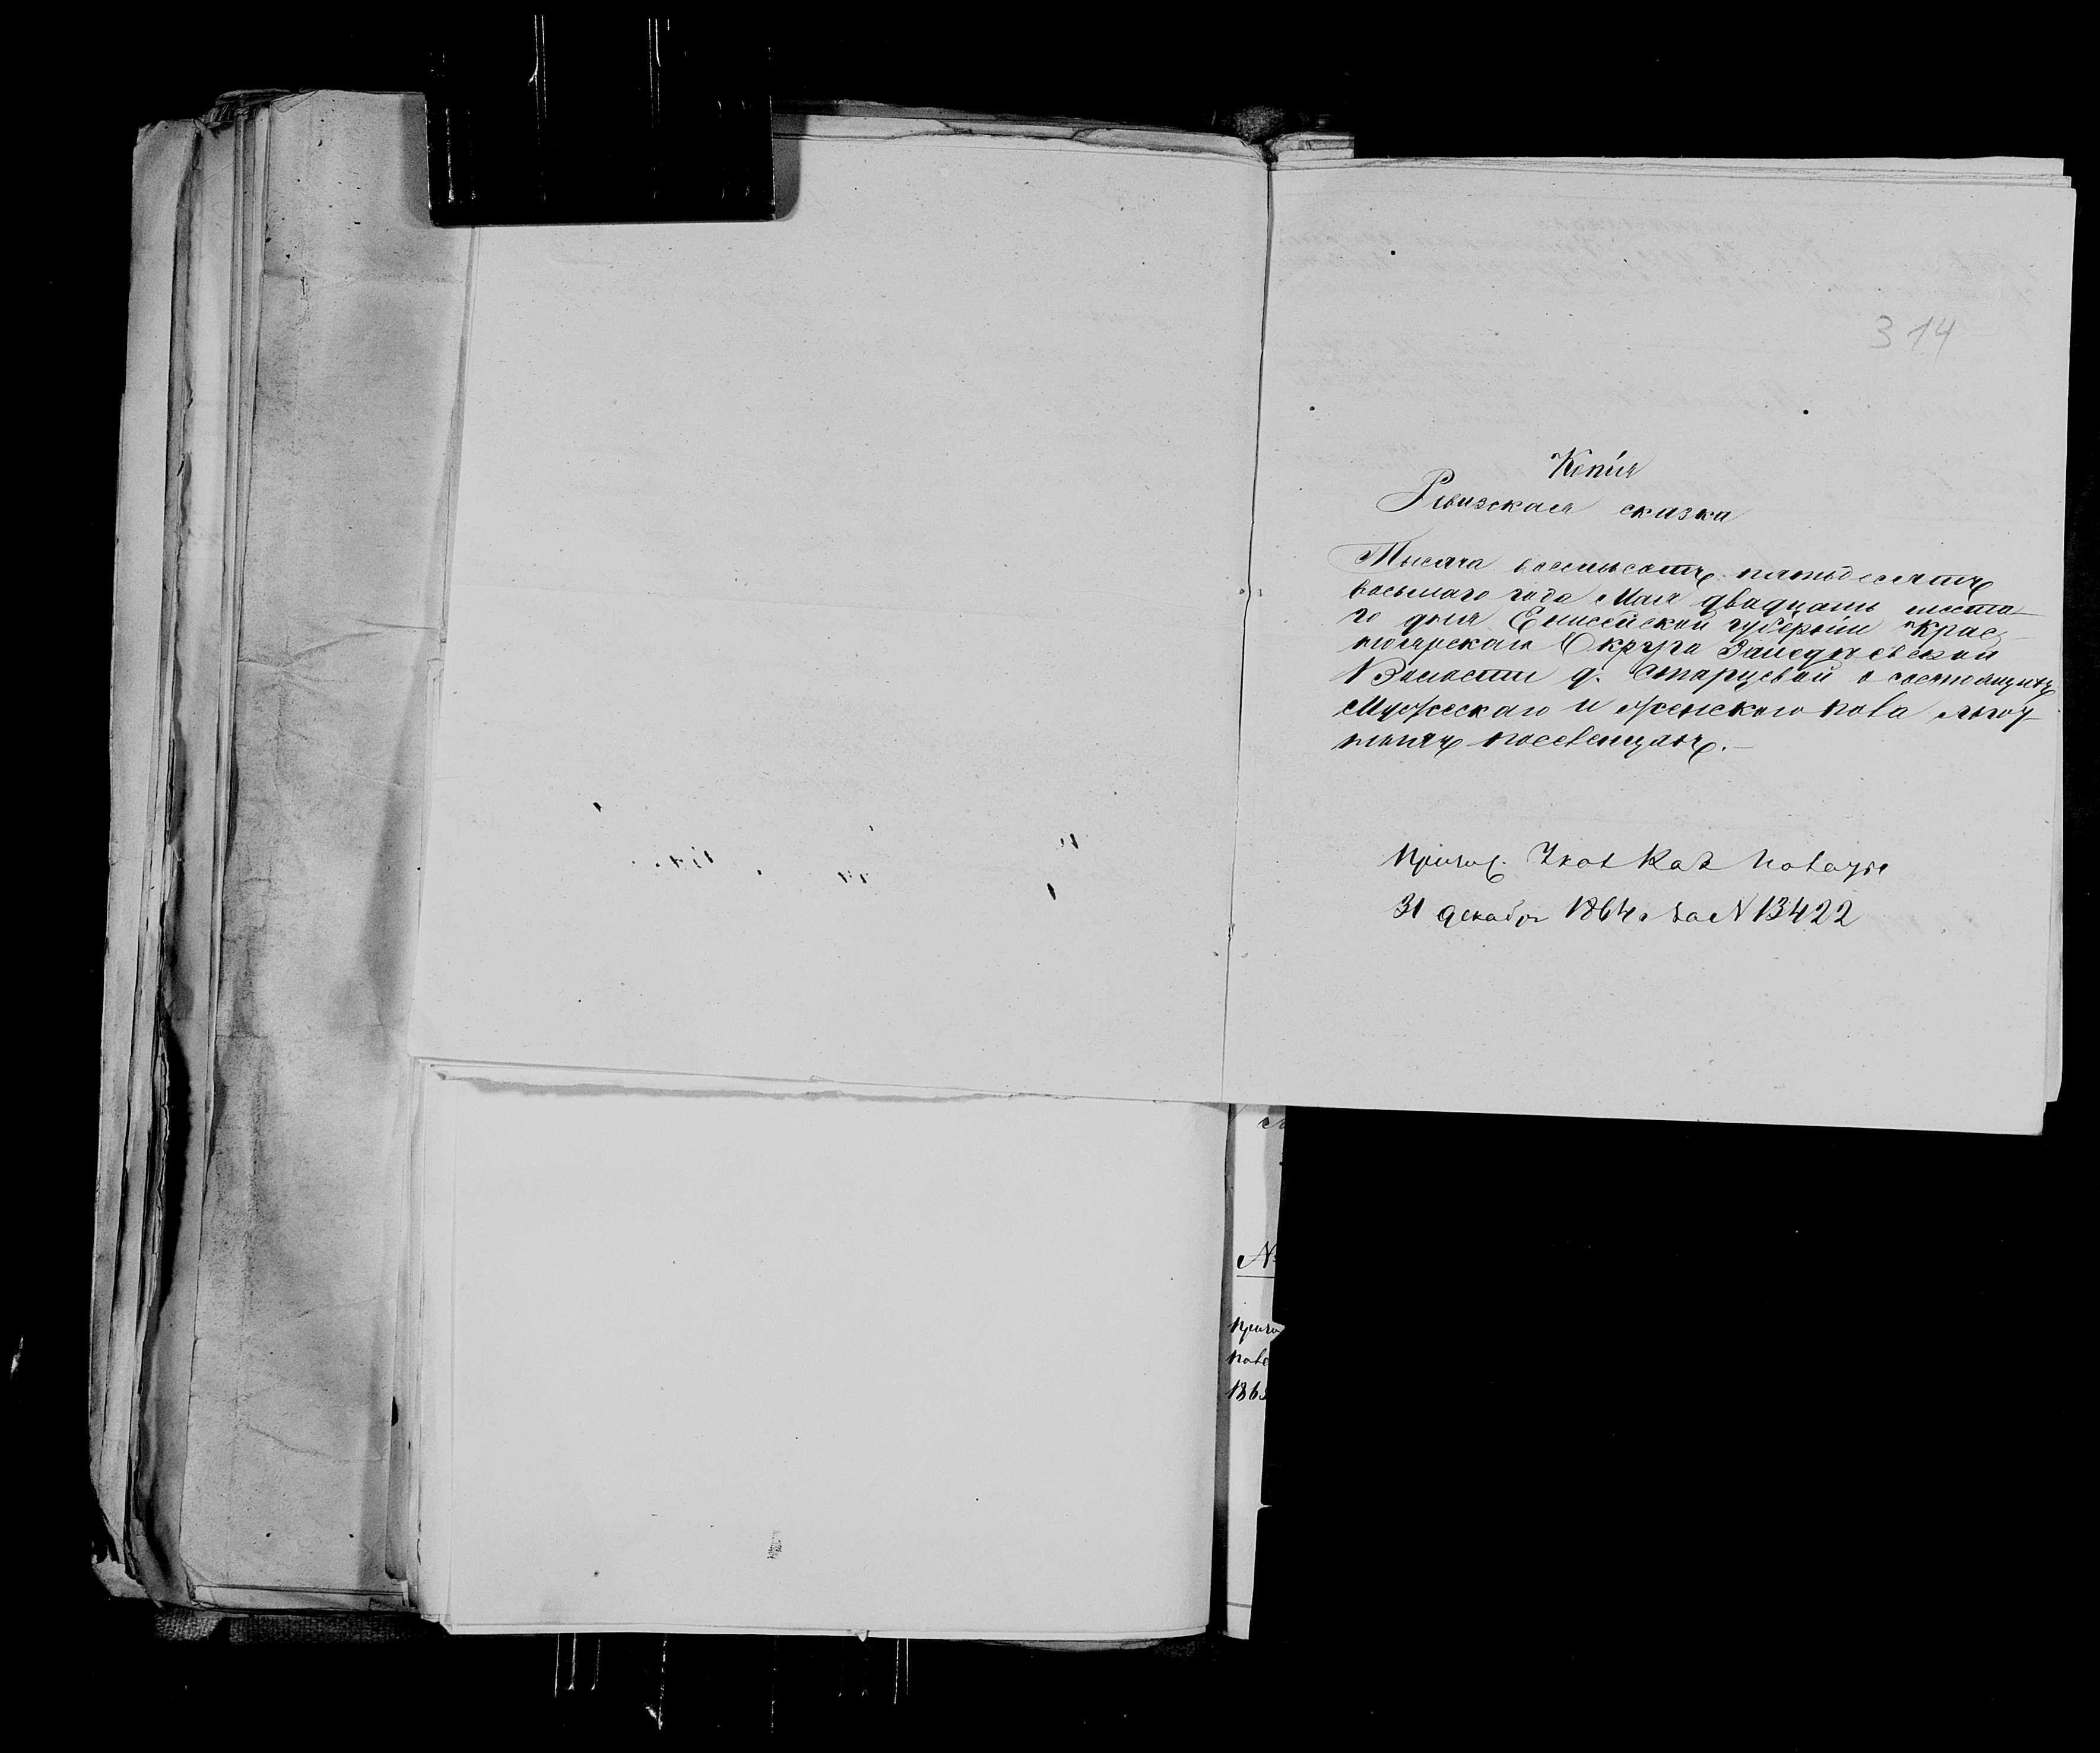 314
Копія
Ревизская сказка
Тысяча восемьсотъ пятьдесятъ
восьмаго года Мая двадцать шеста-
го дня Енисейской губерніи Крас-
ноярскаго Округа Заледѣевской
Волости д. Старцевой о состоящихъ
Мужескаго и женского пола
поселенцахъ.-
Причис. Каз
31 декабря 1864 г за N 13422
N
Причи
186